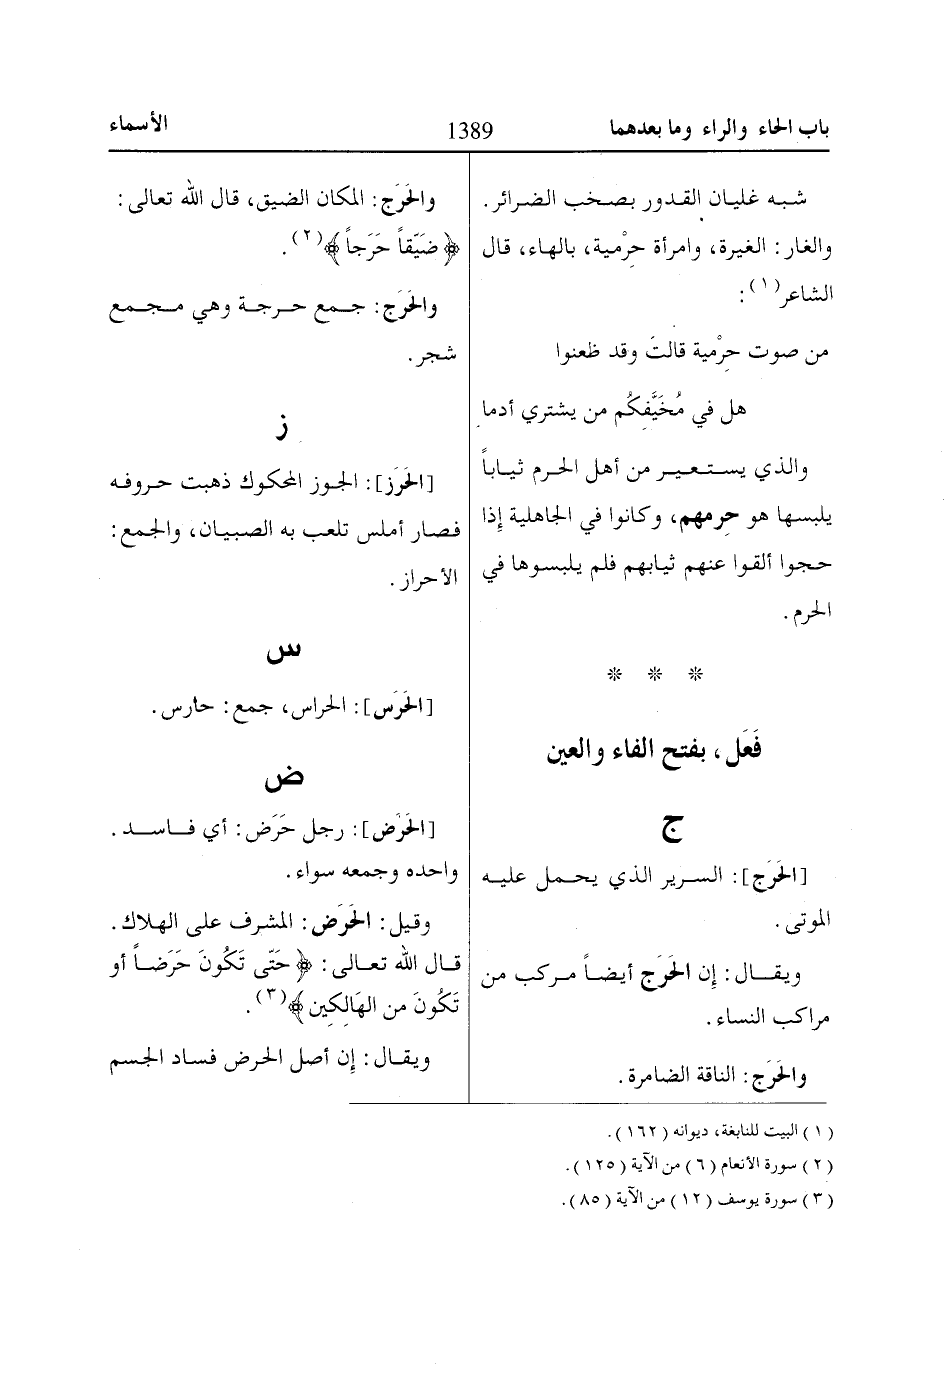 باب الحاء والراء وما بعدهما 1389 الأسماء
شبه غليان القدور بصخب الضرائر.
والغار: الغيرة، وامرأة حِرْمية، بالهاء، قال
الشاعر(١):
من صوت حِرْمية قالتَ وقد ظعنوا
هل في مُخَيَّفِكُم من يشتري أدما
والذي يستعير من أهل الحرم ثياباً
يلبسها هو حِرمهم، وكانوا في الجاهلية إِذا
حجوا ألقوا عنهم ثيابهم فلم يلبسوها في
الحرم.
* * *
فَعَل، بفتح الفاء والعين
ج
[الحَرَج]: السرير الذي يحمل عليه
الموتى.
ويقال: إِن الحَرَج أيضاً مركب من
مراكب النساء.
والحَرَج: الناقة الضامرة.
والحَرَج: المكان الضيق، قال الله تعالى:
﴿ضَيِّقاً حَرَجاً﴾(٢).
والحَرَج: جمع حرجة وهي مجمع
شجر.
ز
[الحَرَز]: الجوز المحكوك ذهبت حروفه
فصار أملس تلعب به الصبيان، والجمع:
الأحراز.
س
[الحَرَس]: الحراس، جمع: حارس.
ض
[الحَرَض]: رجل حَرَض: أي فاسد.
واحده وجمعه سواء.
وقيل: الحَرَض: المشرف على الهلاك.
قال الله تعالى: ﴿حَتَّى تَكُونَ حَرَضاً أو
تَكُونَ من الهَالِكِين﴾(٣).
ويقال: إِن أصل الحرض فساد الجسم
(١) البيت للنابغة، ديوانه (١٦٢).
(٢) سورة الأنعام (٦) من الآية (١٢٥).
(٣) سورة يوسف (١٢) من الآية (٨٥).